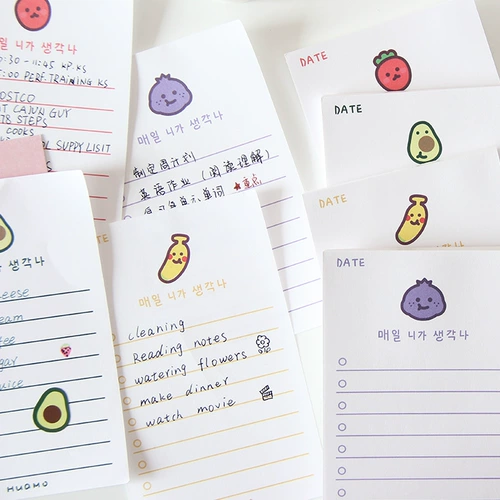 매일 니가 생각나
:30 - 11:45 KP.KS
:00 PERF.TRAINING KS
COSTCO
CAJUN GUY
78 STEPS
COOKS
SUPPLY LIST
매일 니가 생각나
制定周计划
英语作业 (阅读理解)
复习单元单词 ★重点
DATE
DATE
DATE
DATE
매일 니가 생각나
생각나
매일 니가 생각나
cleaning
Reading notes
watering flowers
make dinner
watch movie
HUAMO